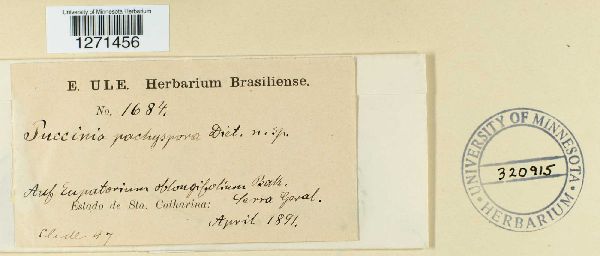 University of Minnesota Herbarium
1271456
E. ULE. Herbarium Brasiliense.
No. 1684.
Puccinia pachyspora Diet. n. sp.
Auf Eupatorium oblongifolium Bak.
Estado de Sta. Catharina: Serra Geral.
April 1891.
47
UNIVERSITY OF MINNESOTA
320915
· HERBARIUM ·